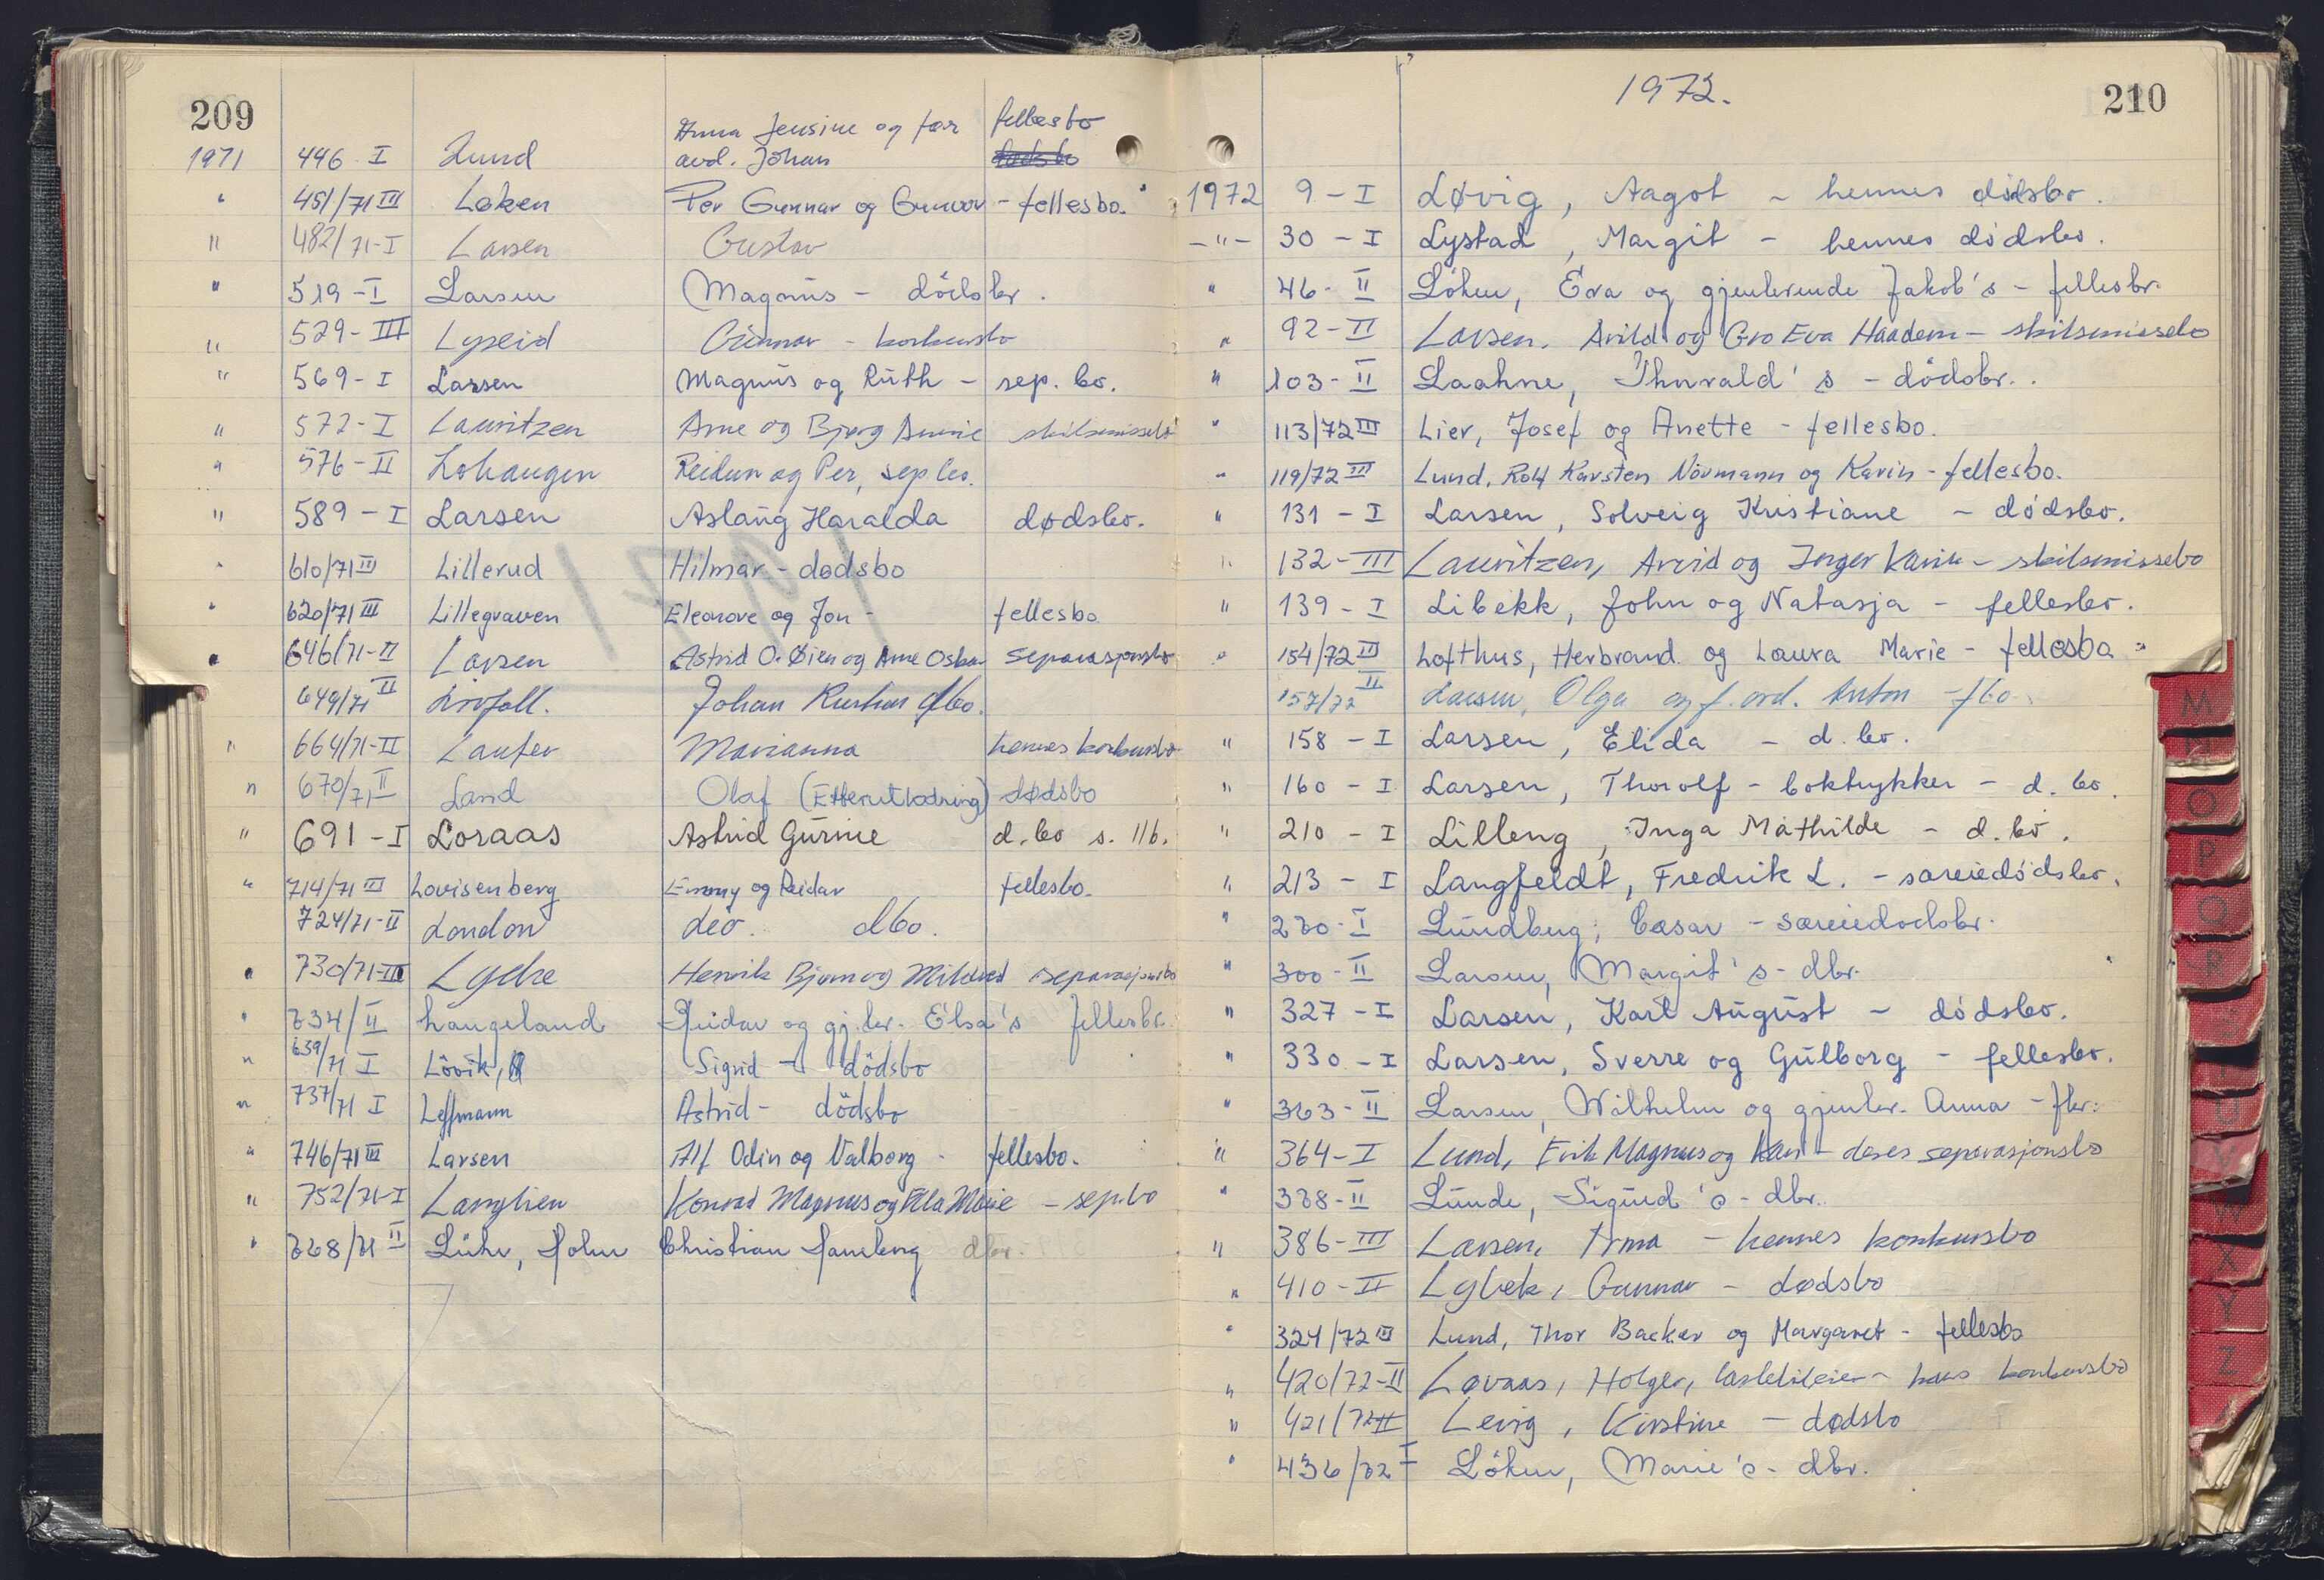 209
Anna Jensine og før fellesbo
1971 446 I Lund avd. Johan dødsbo
" 451/71 III Løken Per Gunnar og Gunvor - fellesbo.
" 482/71-I Larsen Gustav
" 519-I Larsen Magnus - dödsbr.
" 529-III Lyseid Gunnar - konkursbo
" 569-I Larsen Magnus og Ruth - sep. bo.
" 572-I Lauritzen Arne og Bjørg Annie skilsmissebo
" 576-II Lohaugen Reidun og Per, sep bo.
" 589-I Larsen Aslaug Haralda dødsbo.
" 610/71 III Lillerud Hilmar - dødsbo
" 620/71 III Lillegraven Eleonore og Jon - fellesbo
" 646/71-II Larsen Astrid O. Øien og Arne Oskar separasjonsbo
649/71 II Johan dbo.
" 664/71-II Laufer Marianna hennes konkursbo
" 670/71 II Land Olaf (Etterutlodning) dødsbo
" 691-I Loraas Astrid Gurine d.bo s. 116.
" 714/71 III Lovisenberg Emmy og Reidar fellesbo.
724/71-II London Leo. dbo.
" 730/71-III Lycke Henrik Bjørn og Mildred separasjonsbo
" 734/II Langeland Reidar og gj.lev. Elsa's fellesbr.
" 639/71 I Lövik, Sigrid - dödsbo
" 737/71 I Leffmann Astrid - dödsbo
" 746/71 III Larsen Alf Odin og Valborg - fellesbo.
" 752/71-I Langlien Konrad Magnus og Ella Marie - sep.bo
" 768/71 II Lühr, John Christian Hamberg dbr.
1972.
210
1972 9-I Løvig, Aagot - hennes dödsbo.
-"- 30-I Lystad, Margit - hennes dödsbo.
" 46-II Löken, Eva og gjenlevende Jakob's - fellesbr.
" 92-II Larsen, Arild og Gro Eva Haadem - skilsmissebo
" 103-II Laahne, Thorvald's - dödsbr.
" 113/72 III Lier, Josef og Anette - fellesbo.
" 119/72 III Lund, Rolf Karsten Normann og Karin - fellesbo.
" 131-I Larsen, Solveig Kristiane - dödsbo.
" 132-III Lauritzen, Arvid og Inger Karin - skilsmissebo
" 139-I Libekk, John og Natasja - fellesbo.
" 154/72 III Lofthus, Herbrand og Laura Marie - fellesbo
157/72 II Larsen, Olga og f. avd. Anton - fbo.
" 158-I Larsen, Elida - d.bo.
" 160-I Larsen, Thorolf - boktrykker - d.bo.
" 210-I Lilleng, Inga Mathilde - d.bo.
" 213-I Langfeldt, Fredrik L. - særeiedödsbo.
" 270-I Lundberg, Cæsar - særeiedødsbr.
" 300-II Larsen, Margit's - dbr.
" 327-I Larsen, Karl August - dödsbo.
" 330-I Larsen, Sverre og Gulborg - fellesbo.
" 363-II Larsen, Wilhelm og gjenlev. Anna - fbr.
" 364-I Lund, Erik Magnus og Kari - deres separasjonsbo
" 378-II Lunde, Sigurd's - dbr.
" 386-III Larsen, Irma - hennes konkursbo
" 410-II Lybek, Gunnar - dødsbo
" 324/72 III Lund, Thor Backer og Margaret - fellesbo
" 420/72-II Løvaas, Holger, lastebileier - hans konkursbo
" 421/72 II Leirg, Kirstine - dødsbo
" 436/72 I Löken, Marie's - dbr.
M
N
O
P
Q
R
U
V
W
X
Y
Z